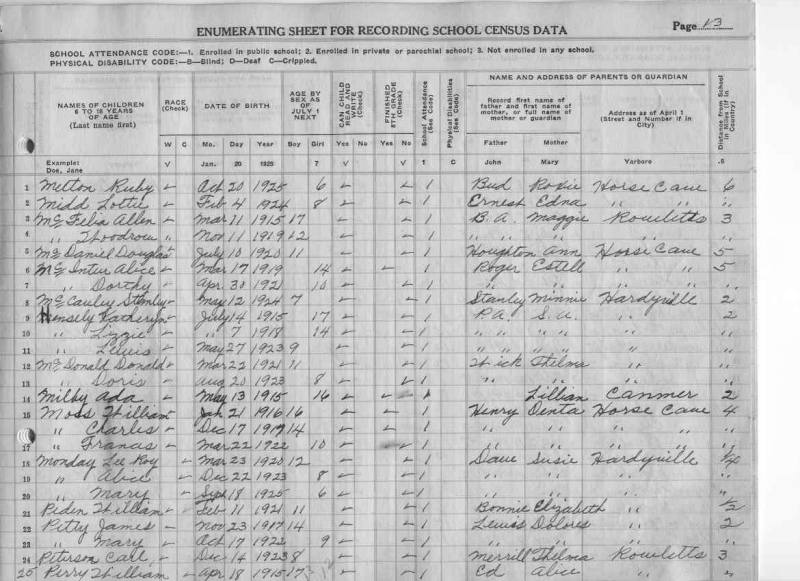 ENUMERATING SHEET FOR RECORDING SCHOOL CENSUS DATA
Page 13
SCHOOL ATTENDANCE CODE:—1. Enrolled in public school; 2. Enrolled in private or parochial school; 3. Not enrolled in any school.
PHYSICAL DISABILITY CODE:—B—Blind; D—Deaf C—Crippled.
NAMES OF CHILDREN 6 TO 18 YEARS OF AGE (Last name first) RACE (Check) DATE OF BIRTH AGE BY SEX AS OF JULY 1 NEXT CAN CHILD READ AND WRITE (Check) FINISHED 8TH GRADE (Check) School Attendance (See Code) Physical Disabilities (See Code) NAME AND ADDRESS OF PARENTS OR GUARDIAN Distance from School in Miles (If in Country)
Record first name of father and first name of mother, or full name of mother or guardian Address as of April 1 (Street and Number if in City)
W C Mo. Day Year Boy Girl Yes No Yes No 1 C Father Mother
Example: Doe, Jane V Jan. 20 1925 7 V V 1 John Mary Yarboro .5
1 Melton Ruby ✓ Oct 20 1925 6 ✓ ✓ 1 Bud Roxie Horse Cave 6
2 Midd Lottie ✓ Feb 4 1924 8 ✓ ✓ 1 Ernest Edna " " "
3 McFelia Allen ✓ Mar 11 1915 17 ✓ ✓ 1 B.A. Maggie Rowletts 3
4 " Woodrow ✓ Nov 11 1919 12 ✓ ✓ 1 " " " "
5 McDaniel Douglas ✓ July 10 1920 11 ✓ ✓ 1 Houghton Ann Horse Cave 5
6 McIntur Alice ✓ Mar 17 1919 14 ✓ ✓ 1 Roger Estell " " 5
7 " Dorthy ✓ Apr. 30 1921 10 ✓ ✓ 1 " " " " "
8 McCauley Stanley ✓ May 12 1924 7 ✓ ✓ 1 Stanley Minnie Hardyville 2
9 Hensely Katheryn ✓ July 14 1915 17 ✓ ✓ 1 P.A. S.A. " 2
10 " Lizzie ✓ " 7 1918 14 ✓ ✓ 1 " " " "
11 " Lewis ✓ May 27 1923 9 ✓ ✓ 1 " " " "
12 McDonald Donald ✓ Mar 22 1921 11 ✓ ✓ 1 Thelma " "
13 " Doris ✓ Aug 20 1923 8 ✓ ✓ 1 " " " "
14 Milby Ada ✓ May 13 1915 16 ✓ ✓ 1 Lillian Canmer 2
15 Moss William ✓ 21 1916 16 ✓ ✓ 1 Henry Denta Horse Cave 4
16 " Charlie ✓ Dec 17 1917 14 ✓ ✓ 1 " " " " "
17 " Francis ✓ Mar 22 1922 10 ✓ 1 " " " " "
18 Monday Lee Roy ✓ Mar 23 1920 12 ✓ ✓ 1 Dave Susie Hardyville 1/4
19 " Alice ✓ Dec 22 1923 8 ✓ ✓ 1 " " " "
20 " Mary ✓ Sept 18 1925 6 ✓ ✓ 1 " " " "
21 Peden William ✓ Feb 11 1921 11 ✓ ✓ 1 Bonnie Elizabeth " 1/2
22 Pitty James ✓ Nov 23 1917 14 ✓ ✓ 1 Lewis Dolores " 2
23 " Mary ✓ Oct 17 1922 9 ✓ ✓ 1 " " " "
24 Peterson Carl ✓ Dec 14 1923 8 ✓ ✓ 1 Merrill Thelma Rowletts 3
25 Perry William ✓ Apr 18 1915 17 ✓ ✓ 1 Ed Alice " "